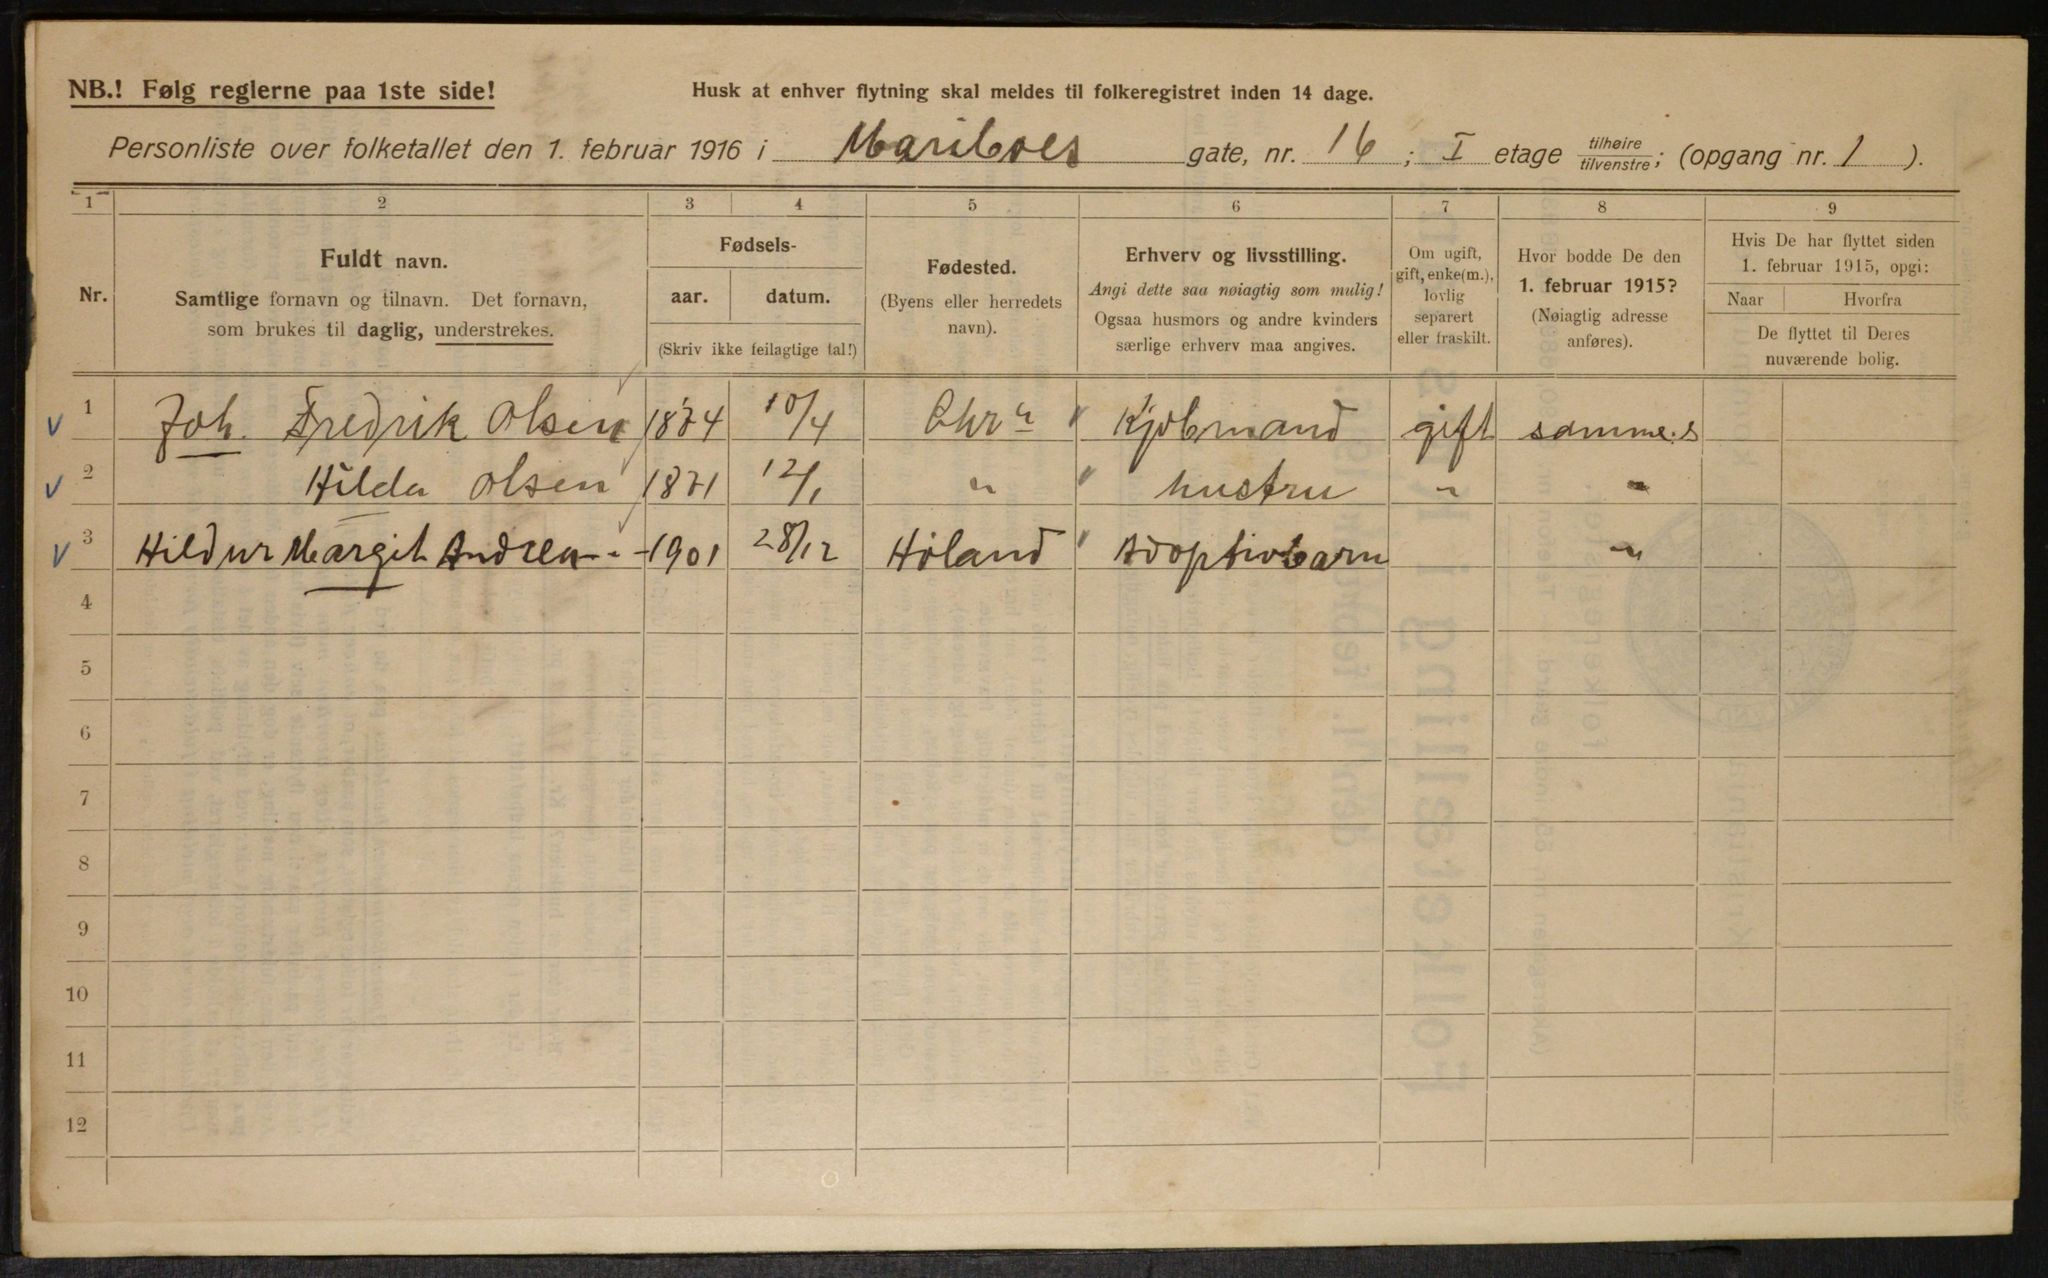 NB.! Følg reglerne paa 1ste side!
Husk at enhver flytning skal meldes til folkeregistret inden 14 dage.
Personliste over folketallet den 1. februar 1916 i Mariboes gate, nr. 16 ; I etage tilhøire tilvenstre; (opgang nr. 1 ).
1 2 3 4 5 6 7 8 9
Nr.
Fuldt navn.
Samtlige fornavn og tilnavn. Det fornavn,
som brukes til daglig, understrekes.
Fødsels-
aar. datum.
(Skriv ikke feilagtige tal!)
Fødested.
(Byens eller herredets
navn).
Erhverv og livsstilling.
Angi dette saa nøiagtig som mulig!
Ogsaa husmors og andre kvinders
særlige erhverv maa angives.
Om ugift,
gift, enke(m.),
lovlig
separert
eller fraskilt.
Hvor bodde De den
1. februar 1915?
(Nøiagtig adresse
anføres).
Hvis De har flyttet siden
1. februar 1915, opgi:
Naar Hvorfra
De flyttet til Deres
nuværende bolig.
1 Joh. Fredrik Olsen 1874 10/4 Chr a Kjøbmand gift samme.s
2 Hilda Olsen 1871 12/1 " hustru " "
3 Hildur Margit Andrea - 1901 28/12 Høland Adoptivbarn "
4
5
6
7
8
9
10
11
12